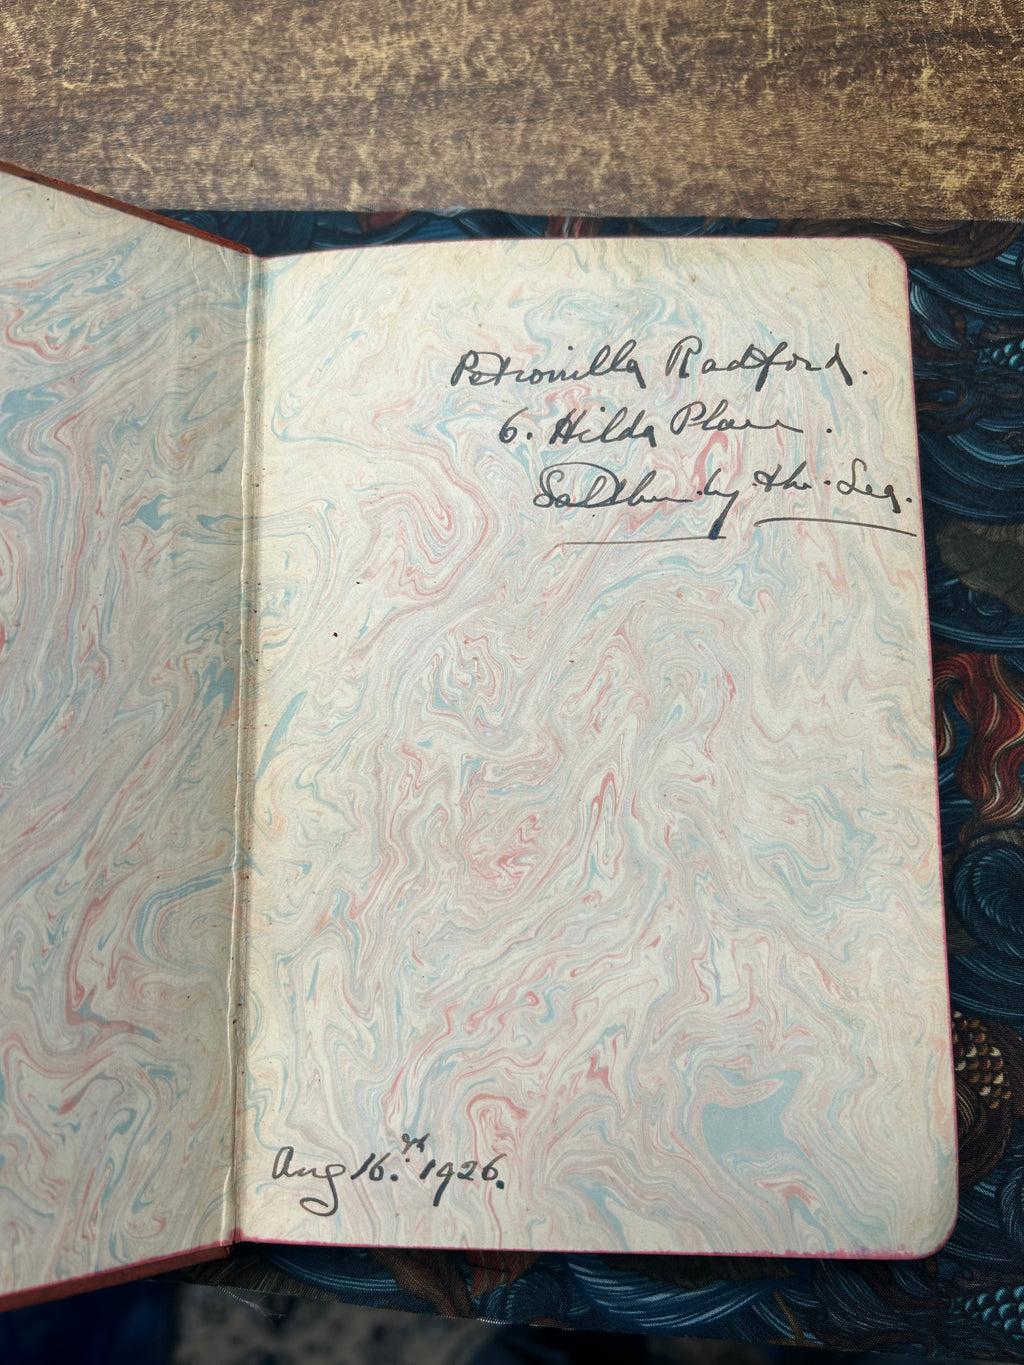 Petronilla Radford.
6. Hilda Place.
Saltburn-by-the-Sea.
Aug 16.th 1926.